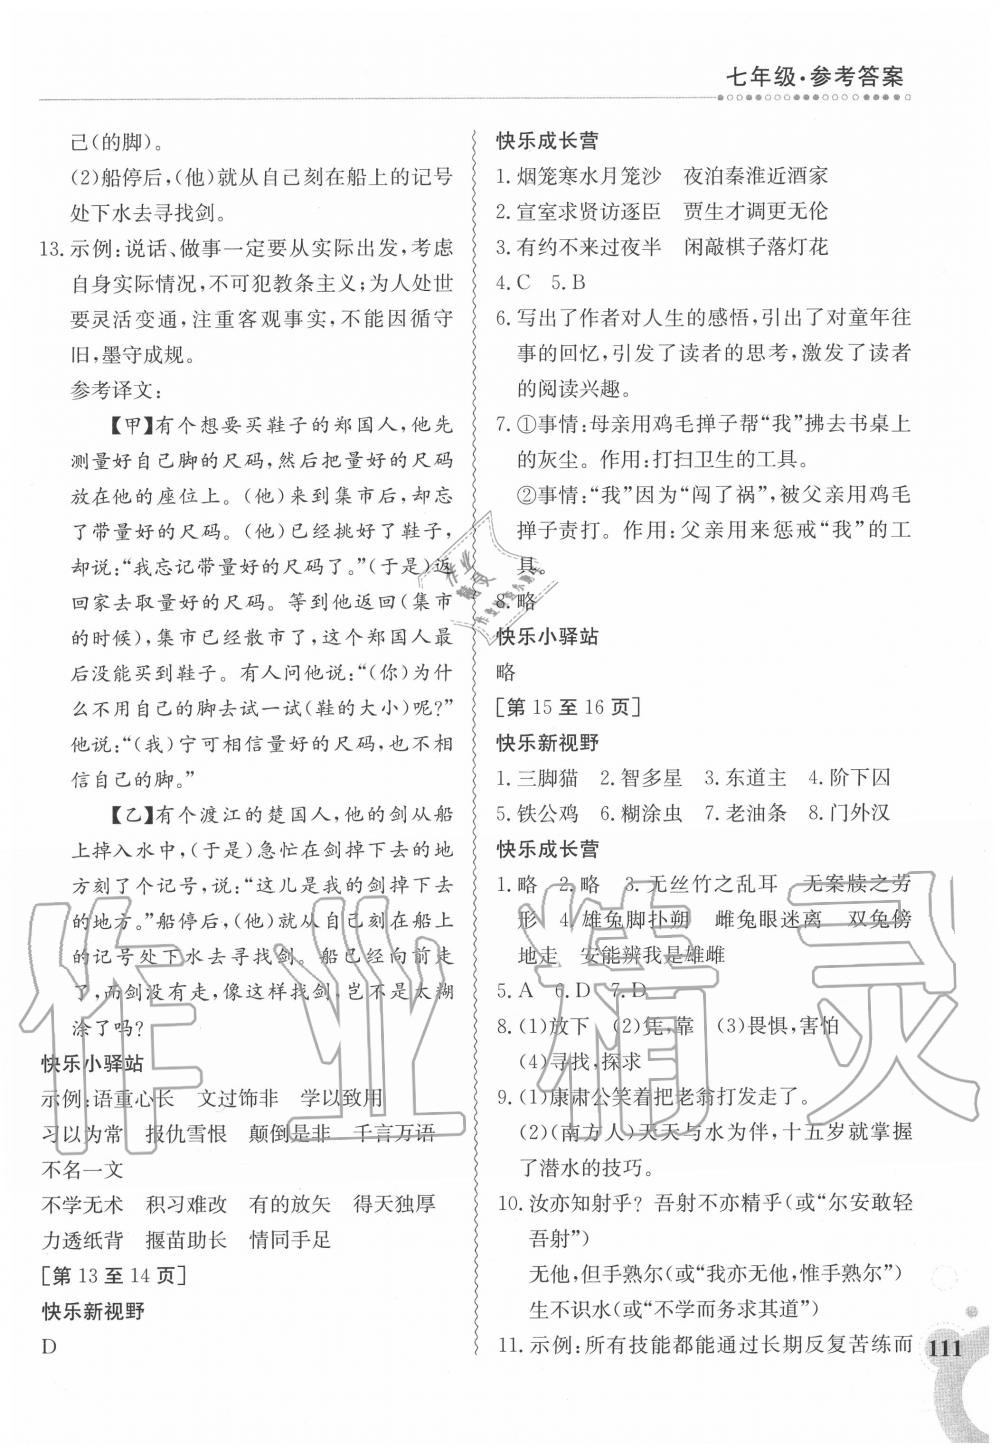 七年级·参考答案
己(的脚)。
(2)船停后,(他)就从自己刻在船上的记号
处下水去寻找剑。
13. 示例:说话、做事一定要从实际出发,考虑
自身实际情况,不可犯教条主义;为人处世
要灵活变通,注重客观事实,不能因循守
旧,墨守成规。
参考译文:
【甲】有个想要买鞋子的郑国人,他先
测量好自己脚的尺码,然后把量好的尺码
放在他的座位上。(他)来到集市后,却忘
了带量好的尺码。(他)已经挑好了鞋子,
却说:“我忘记带量好的尺码了。”(于是)返
回家去取量好的尺码。等到他返回(集市
的时候),集市已经散市了,这个郑国人最
后没能买到鞋子。有人问他说:“(你)为什
么不用自己的脚去试一试(鞋的大小)呢?”
他说:“(我)宁可相信量好的尺码,也不相
信自己的脚。”
【乙】有个渡江的楚国人,他的剑从船
上掉入水中,(于是)急忙在剑掉下去的地
方刻了个记号,说:“这儿是我的剑掉下去
的地方。”船停后,(他)就从自己刻在船上
的记号处下水去寻找剑。船已经向前走
了,而剑没有走,像这样找剑,岂不是太糊
涂了吗?
快乐小驿站
示例:语重心长 文过饰非 学以致用
习以为常 报仇雪恨 颠倒是非 千言万语
不名一文
不学无术 积习难改 有的放矢 得天独厚
力透纸背 揠苗助长 情同手足
[第 13 至 14 页]
快乐新视野
D
快乐成长营
1. 烟笼寒水月笼沙 夜泊秦淮近酒家
2. 宣室求贤访逐臣 贾生才调更无伦
3. 有约不来过夜半 闲敲棋子落灯花
4. C 5. B
6. 写出了作者对人生的感悟,引出了对童年往
事的回忆,引发了读者的思考,激发了读者
的阅读兴趣。
7. ①事情:母亲用鸡毛掸子帮“我”拂去书桌上
的灰尘。作用:打扫卫生的工具。
②事情:“我”因为“闯了祸”,被父亲用鸡毛
掸子责打。作用:父亲用来惩戒“我”的工
具。
8. 略
快乐小驿站
略
[第 15 至 16 页]
快乐新视野
1. 三脚猫 2. 智多星 3. 东道主 4. 阶下囚
5. 铁公鸡 6. 糊涂虫 7. 老油条 8. 门外汉
快乐成长营
1. 略 2. 略 3. 无丝竹之乱耳 无案牍之劳
形 4. 雄兔脚扑朔 雌兔眼迷离 双兔傍
地走 安能辨我是雄雌
5. A 6. D 7. D
8. (1)放下 (2)凭,靠 (3)畏惧,害怕
(4)寻找,探求
9. (1)康肃公笑着把老翁打发走了。
(2)(南方人)天天与水为伴,十五岁就掌握
了潜水的技巧。
10. 汝亦知射乎? 吾射不亦精乎(或“尔安敢轻
吾射”)
无他,但手熟尔(或“我亦无他,惟手熟尔”)
生不识水(或“不学而务求其道”)
11. 示例:所有技能都能通过长期反复苦练而
111
作业精灵